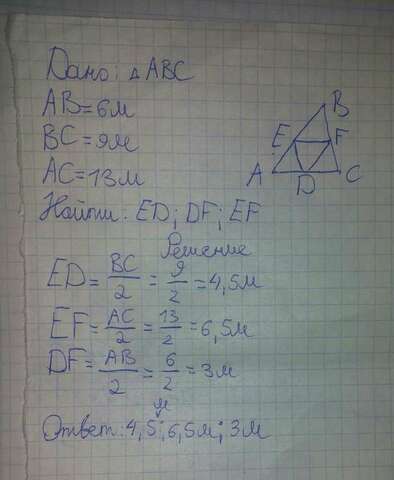 Дано: △ ABC
AB=6м
BC=9м
AC=13м
Найти: ED; DF; EF
B
E
F
A
D
C
Решение
ED= BC/2 = 9/2 =4,5м
EF= AC/2 = 13/2 =6,5м
DF= AB/2 = 6/2 =3м
Ответ: 4,5м; 6,5м; 3м